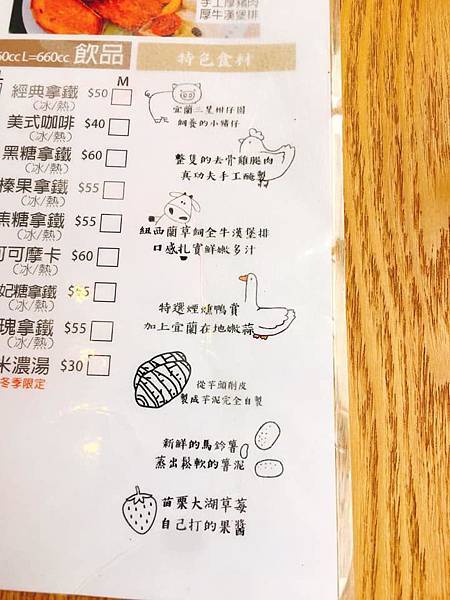 手工厚豬肉
厚牛漢堡排
60cc L=660cc 飲品
特色食材
M
經典拿鐵 $50
(冰/熱)
美式咖啡 $40
(冰/熱)
黑糖拿鐵 $60
(冰/熱)
榛果拿鐵 $55
(冰/熱)
焦糖拿鐵 $55
(冰/熱)
可可摩卡 $60
(冰/熱)
妃糖拿鐵 $55
(冰/熱)
瑰拿鐵 $55
(冰/熱)
米濃湯 $30
冬季限定
宜蘭三星柑仔園
飼養的小豬仔
整隻的去骨雞腿肉
真功夫手工醃製
紐西蘭草飼全牛漢堡排
口感扎實鮮嫩多汁
特選煙燻鴨賞
加上宜蘭在地嫩蒜
從芋頭削皮
製成芋泥完全自製
新鮮的馬鈴薯
蒸出鬆軟的薯泥
苗栗大湖草莓
自己打的果醬